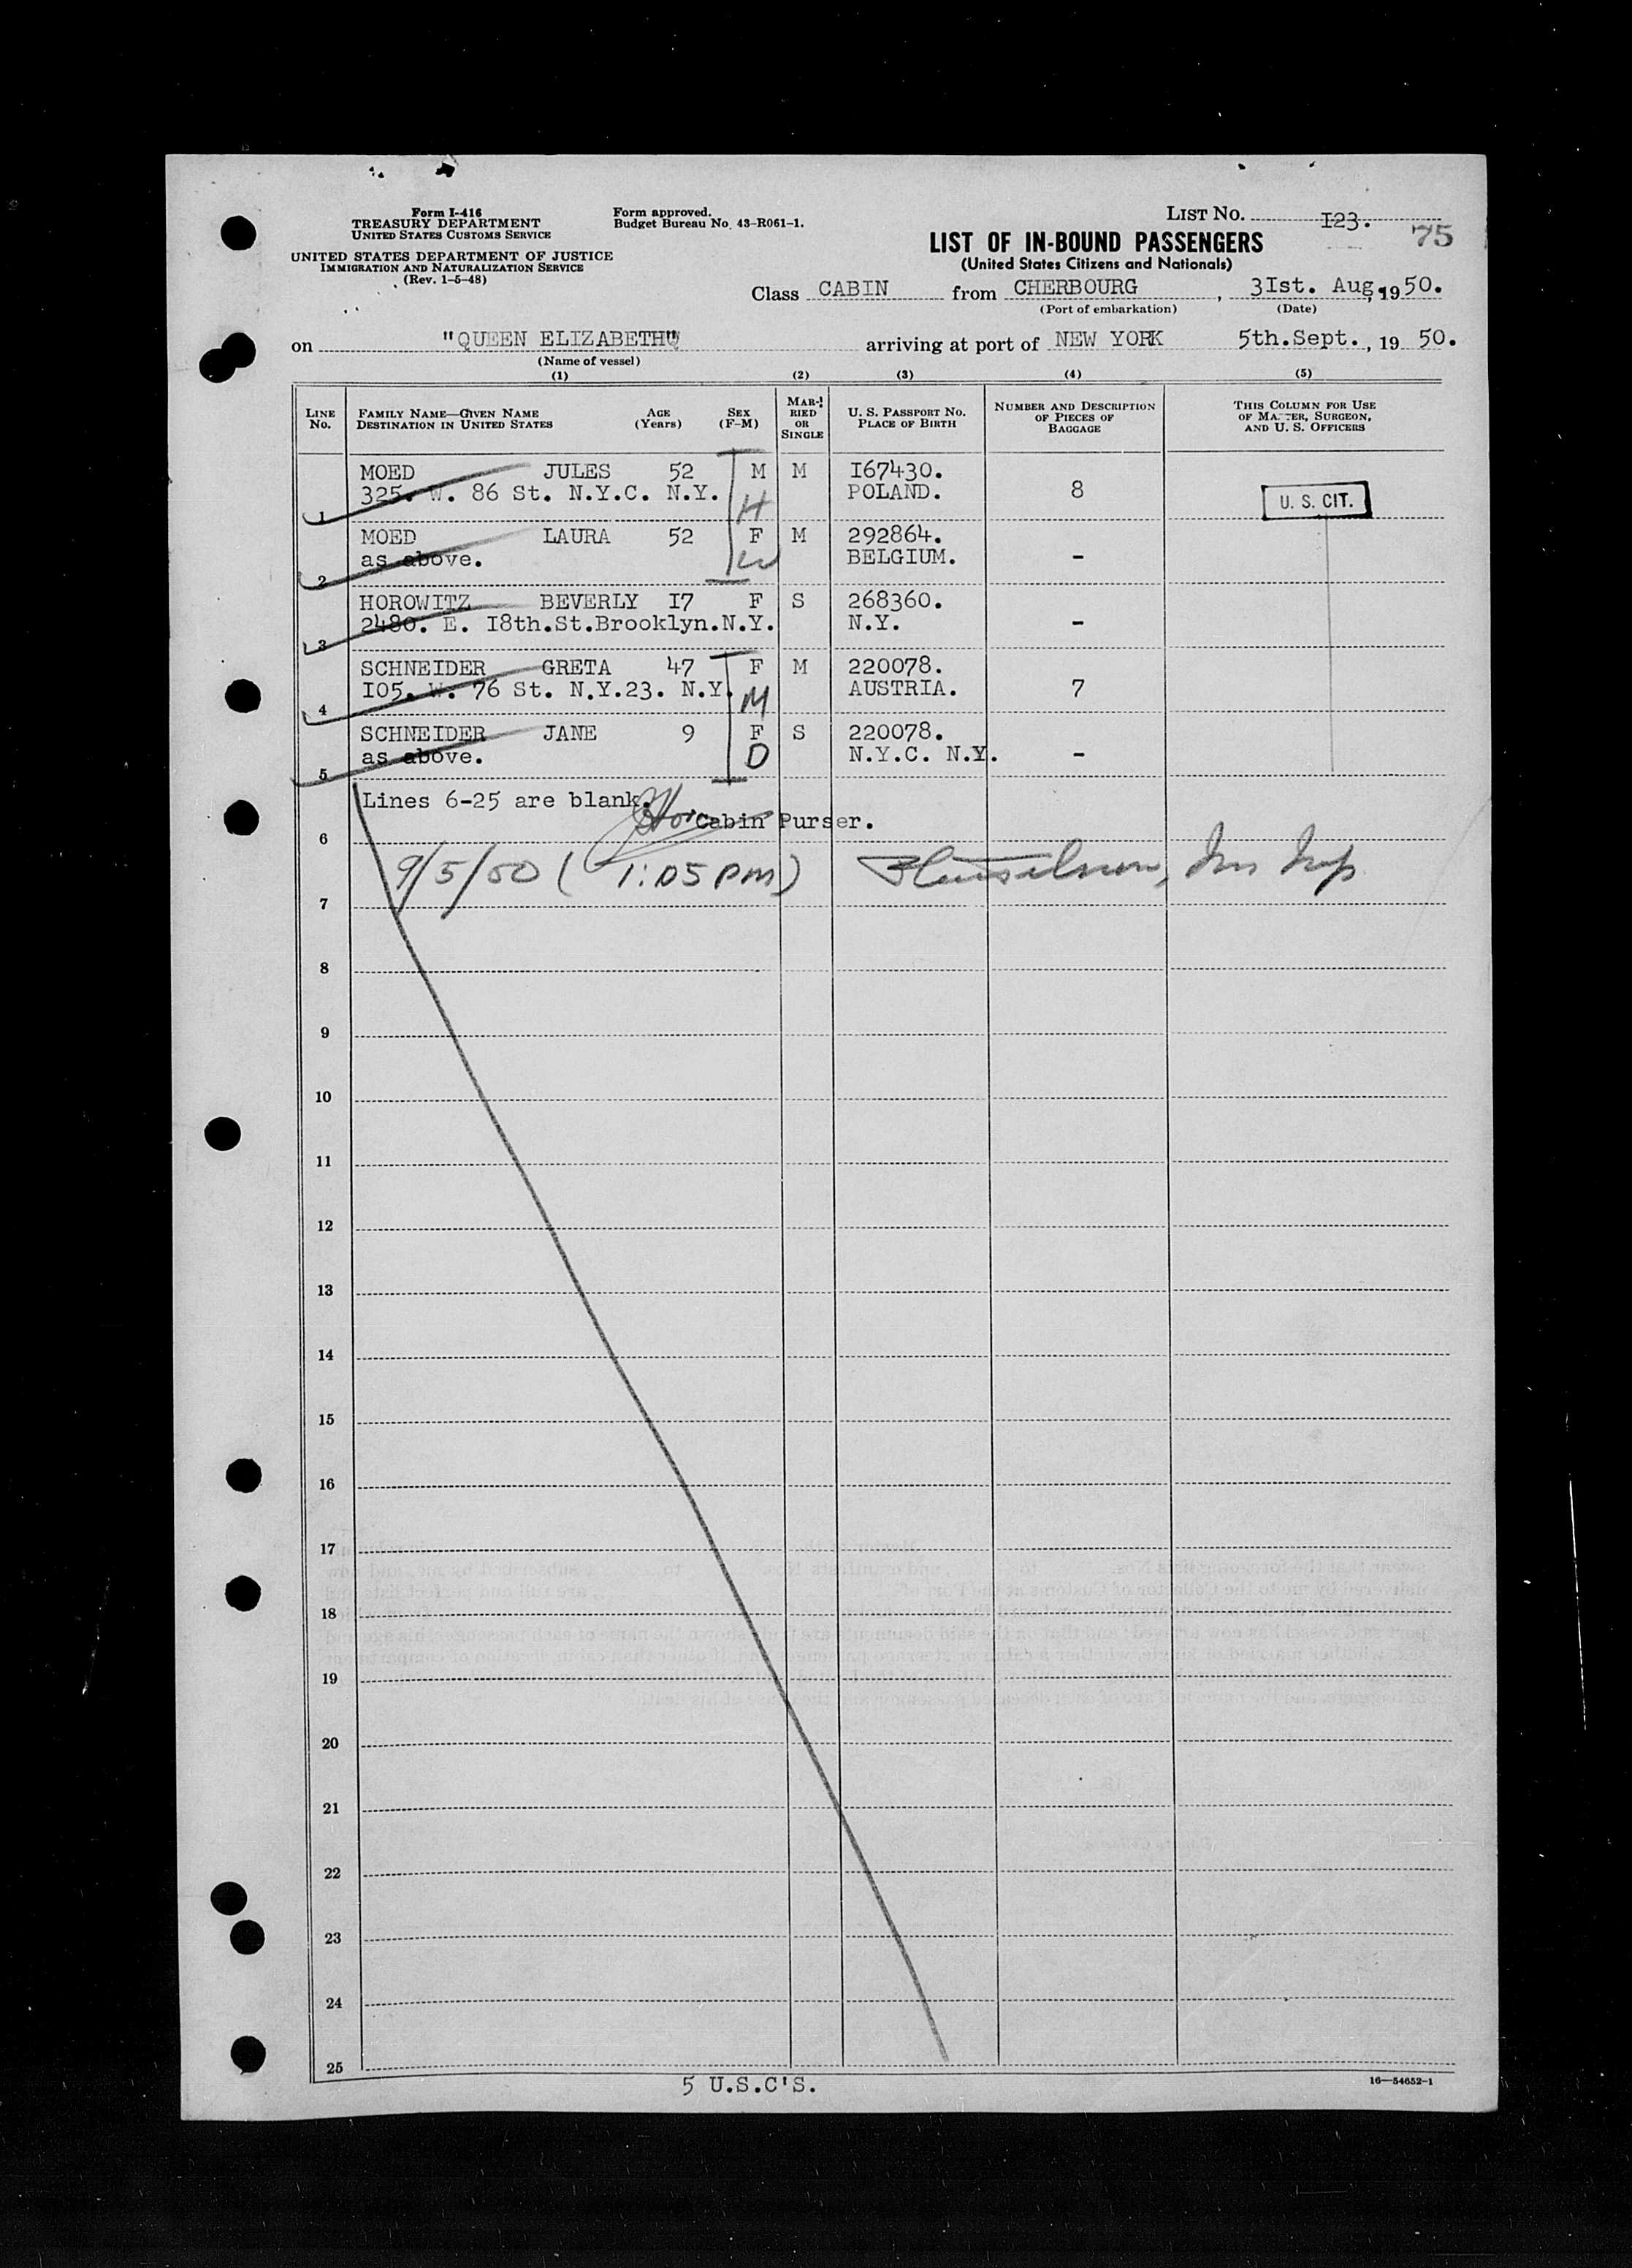 Form I-416
TREASURY DEPARTMENT
UNITED STATES CUSTOMS SERVICE
UNITED STATES DEPARTMENT OF JUSTICE
IMMIGRATION AND NATURALIZATION SERVICE
(Rev. 1-5-48)
Form approved.
Budget Bureau No. 43-R061-1.
LIST NO. I23.
75
LIST OF IN-BOUND PASSENGERS
(United States Citizens and Nationals)
Class CABIN from CHERBOURG, 3Ist. Aug, 1950.
(Port of embarkation) (Date)
on "QUEEN ELIZABETH" arriving at port of NEW YORK 5th.Sept., 19 50.
(Name of vessel)
(1) (2) (3) (4) (5)
LINE No. FAMILY NAME—GIVEN NAME DESTINATION IN UNITED STATES AGE (Years) SEX (F-M) MARRIED OR SINGLE U. S. PASSPORT NO. PLACE OF BIRTH NUMBER AND DESCRIPTION OF PIECES OF BAGGAGE THIS COLUMN FOR USE OF MASTER, SURGEON, AND U. S. OFFICERS
MOED JULES 52 M M I67430.
1 325. W. 86 St. N.Y.C. N.Y. H POLAND. 8 U. S. CIT.
MOED LAURA 52 F M 292864.
2 as above. W BELGIUM. -
HOROWITZ BEVERLY I7 F S 268360.
3 2480. E. I8th.St.Brooklyn.N.Y. N.Y. -
SCHNEIDER GRETA 47 F M 220078.
4 I05. W. 76 St. N.Y.23. N.Y. M AUSTRIA. 7
SCHNEIDER JANE 9 F S 220078.
5 as above. D N.Y.C. N.Y. -
Lines 6-25 are blank.
6 Cabin Purser.
7 9/5/50 ( 1:05 PM)
8
9
10
11
12
13
14
15
16
17
18
19
20
21
22
23
24
25
5 U.S.C'S.
16—54652-1